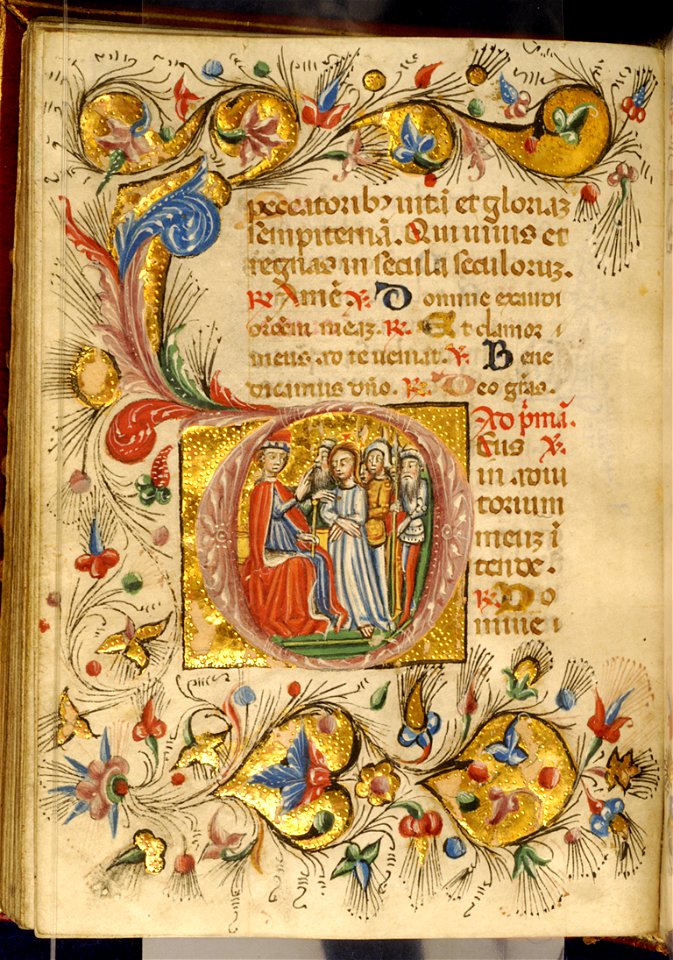 peccatorib⁊ uitā et gloriaz
sempiternā. Qui uiuis et
regnas in secula seculoruz.
R̸ Amē V̸. Domine exaudi
orōem meaz. R̸. Et clamor
meus ad te ueniat. V̸. Bene
dicamus dño. R̸ Deo gr̄as.
Ad p̄mā.
Deus V̸.
in adiu
torium
meuz ī
tende.
R̸. Do
mine